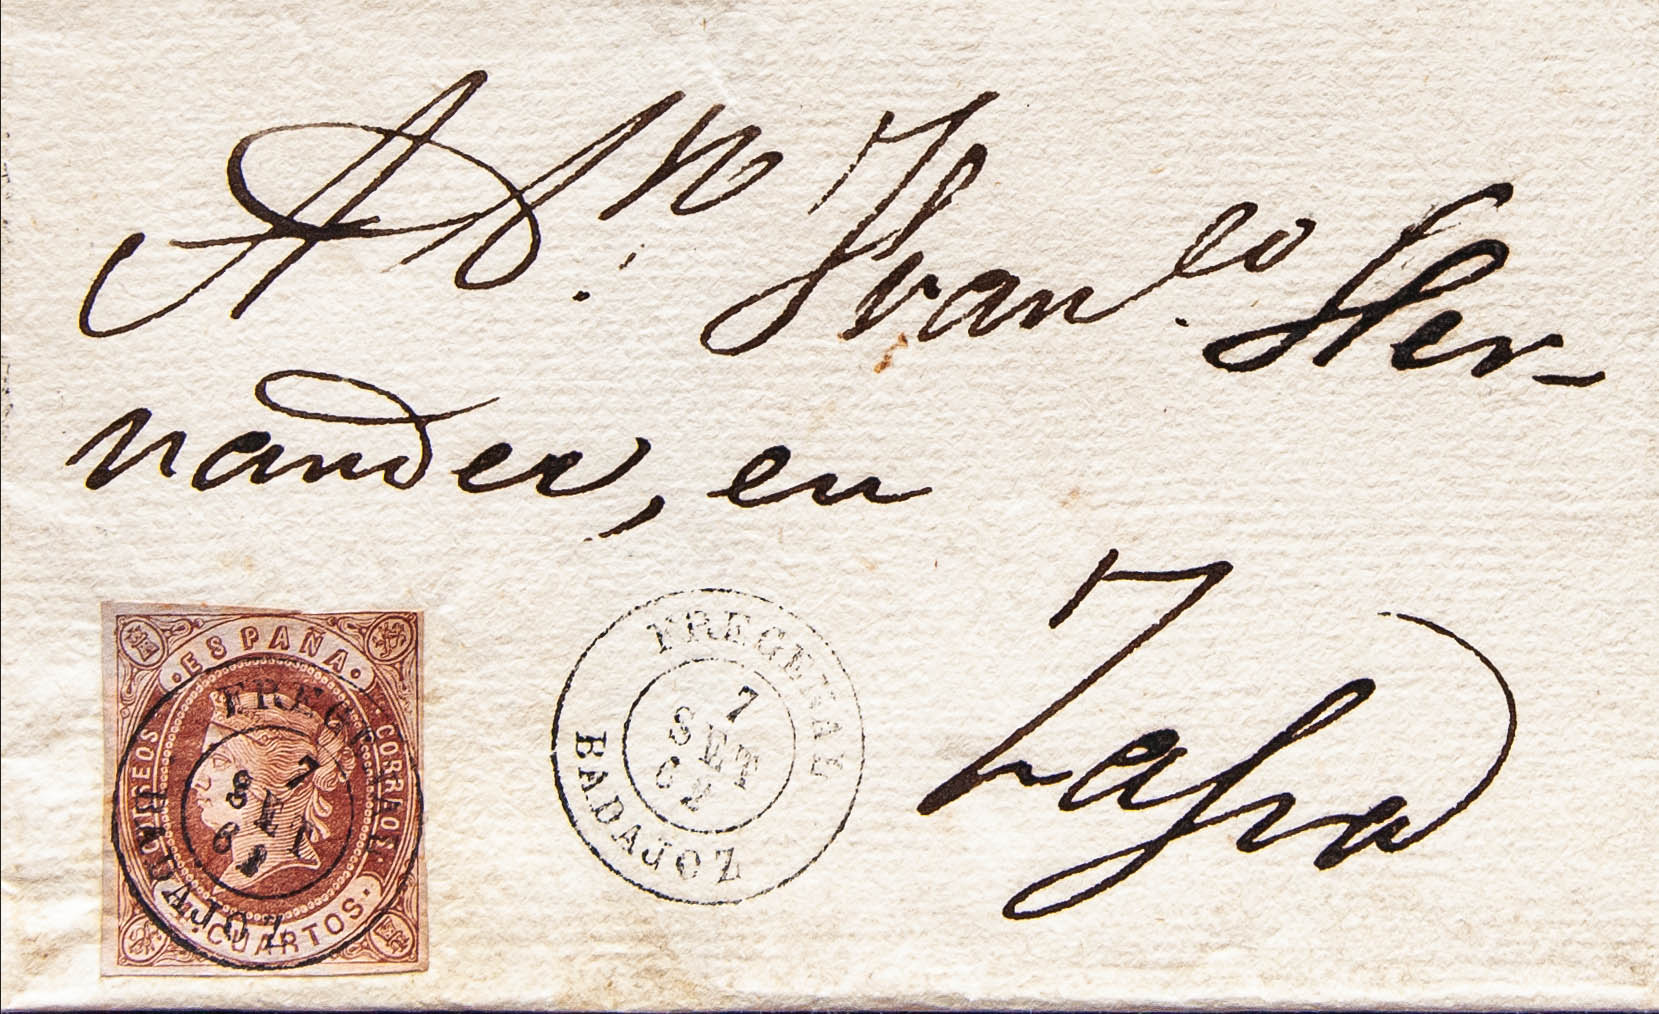 A D.n Fran.co Her-
nandez, en
Zafra
ESPAÑA
CORREOS
CUARTOS
FREGE
7
SET
62
BADAJOZ
FREGENAL
7
SET
62
BADAJOZ